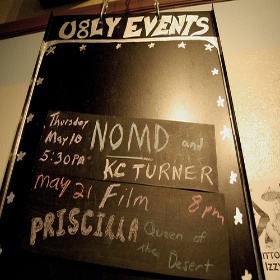 UGLY EVENTS
Thursday
May 10 NOMD and
5:30PM KC TURNER
may 21 Film 8pm
PRISCILLA Queen of
the Desert